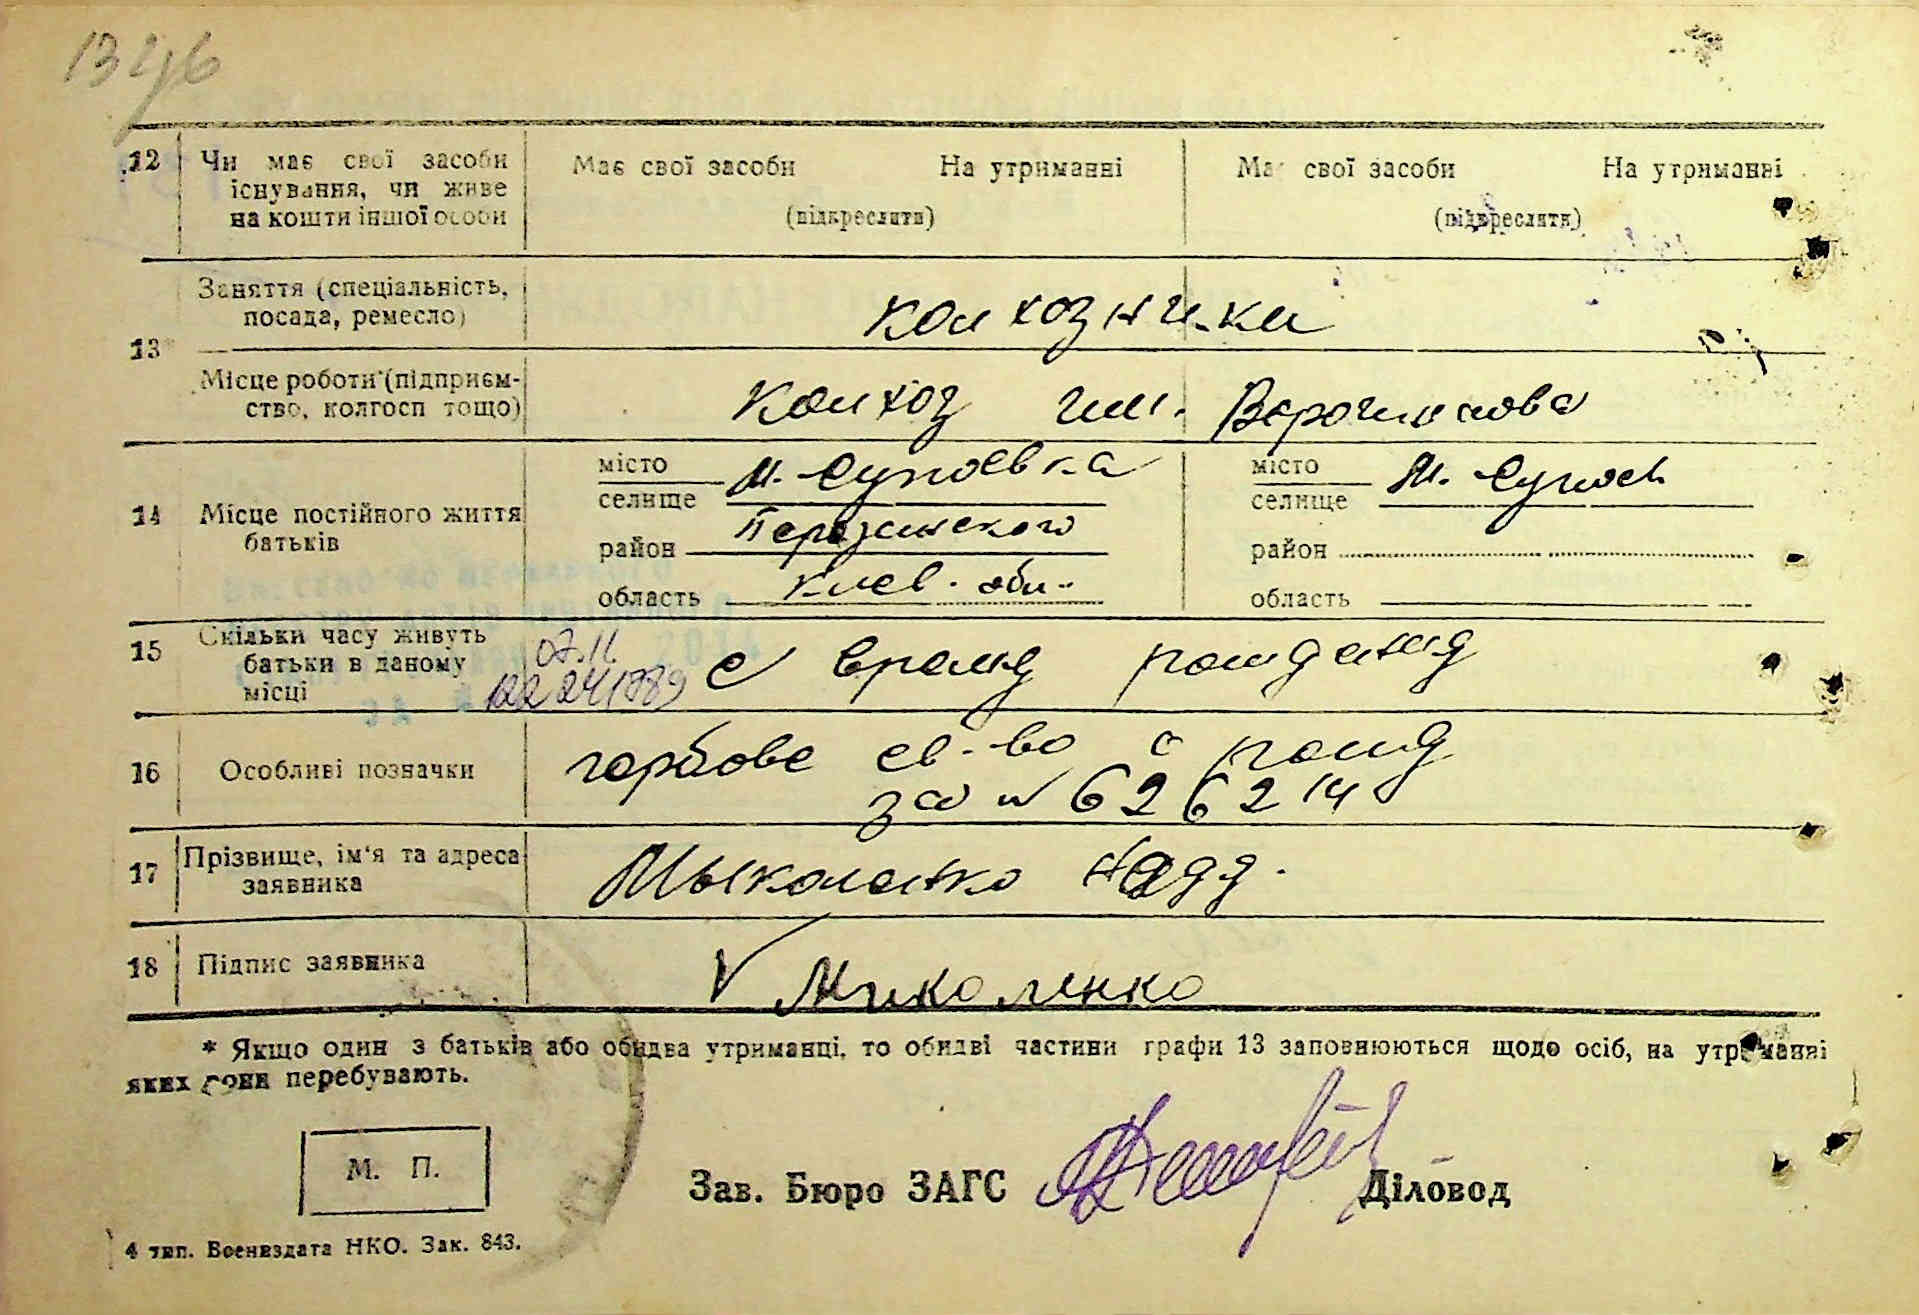 1346
12 Чи має свої засоби існування, чи живе на кошти іншої особи
Має свої засоби На утриманні
(підкреслити)
Має свої засоби На утриманні
(підкреслити)
13 Заняття (спеціальність, посада, ремесло)
колхозники
Місце роботи (підприєм-
ство, колгосп тощо)
колхоз им. Ворошилова
14 Місце постійного життя
батьків
місто
селище М. Супоевка
район
область Киев. обл.
місто
селище М. Супоев
район
область
15 Скільки часу живуть
батьки в даному
місці
07.11.
с время рождения
16 Особливі позначки
гербове св-во о рожд
за № 626214
17 Прізвище, ім'я та адреса
заявника
Мыколенко Надд.
18 Підпис заявника
V Миколенко
* Якщо один з батьків або обидва утриманці, то обидві частини графи 13 заповнюються щодо осіб, на утриманні
яких вони перебувають.
М. П.
Зав. Бюро ЗАГС Діловод
4 тип. Воениздата НКО. Зак. 843.